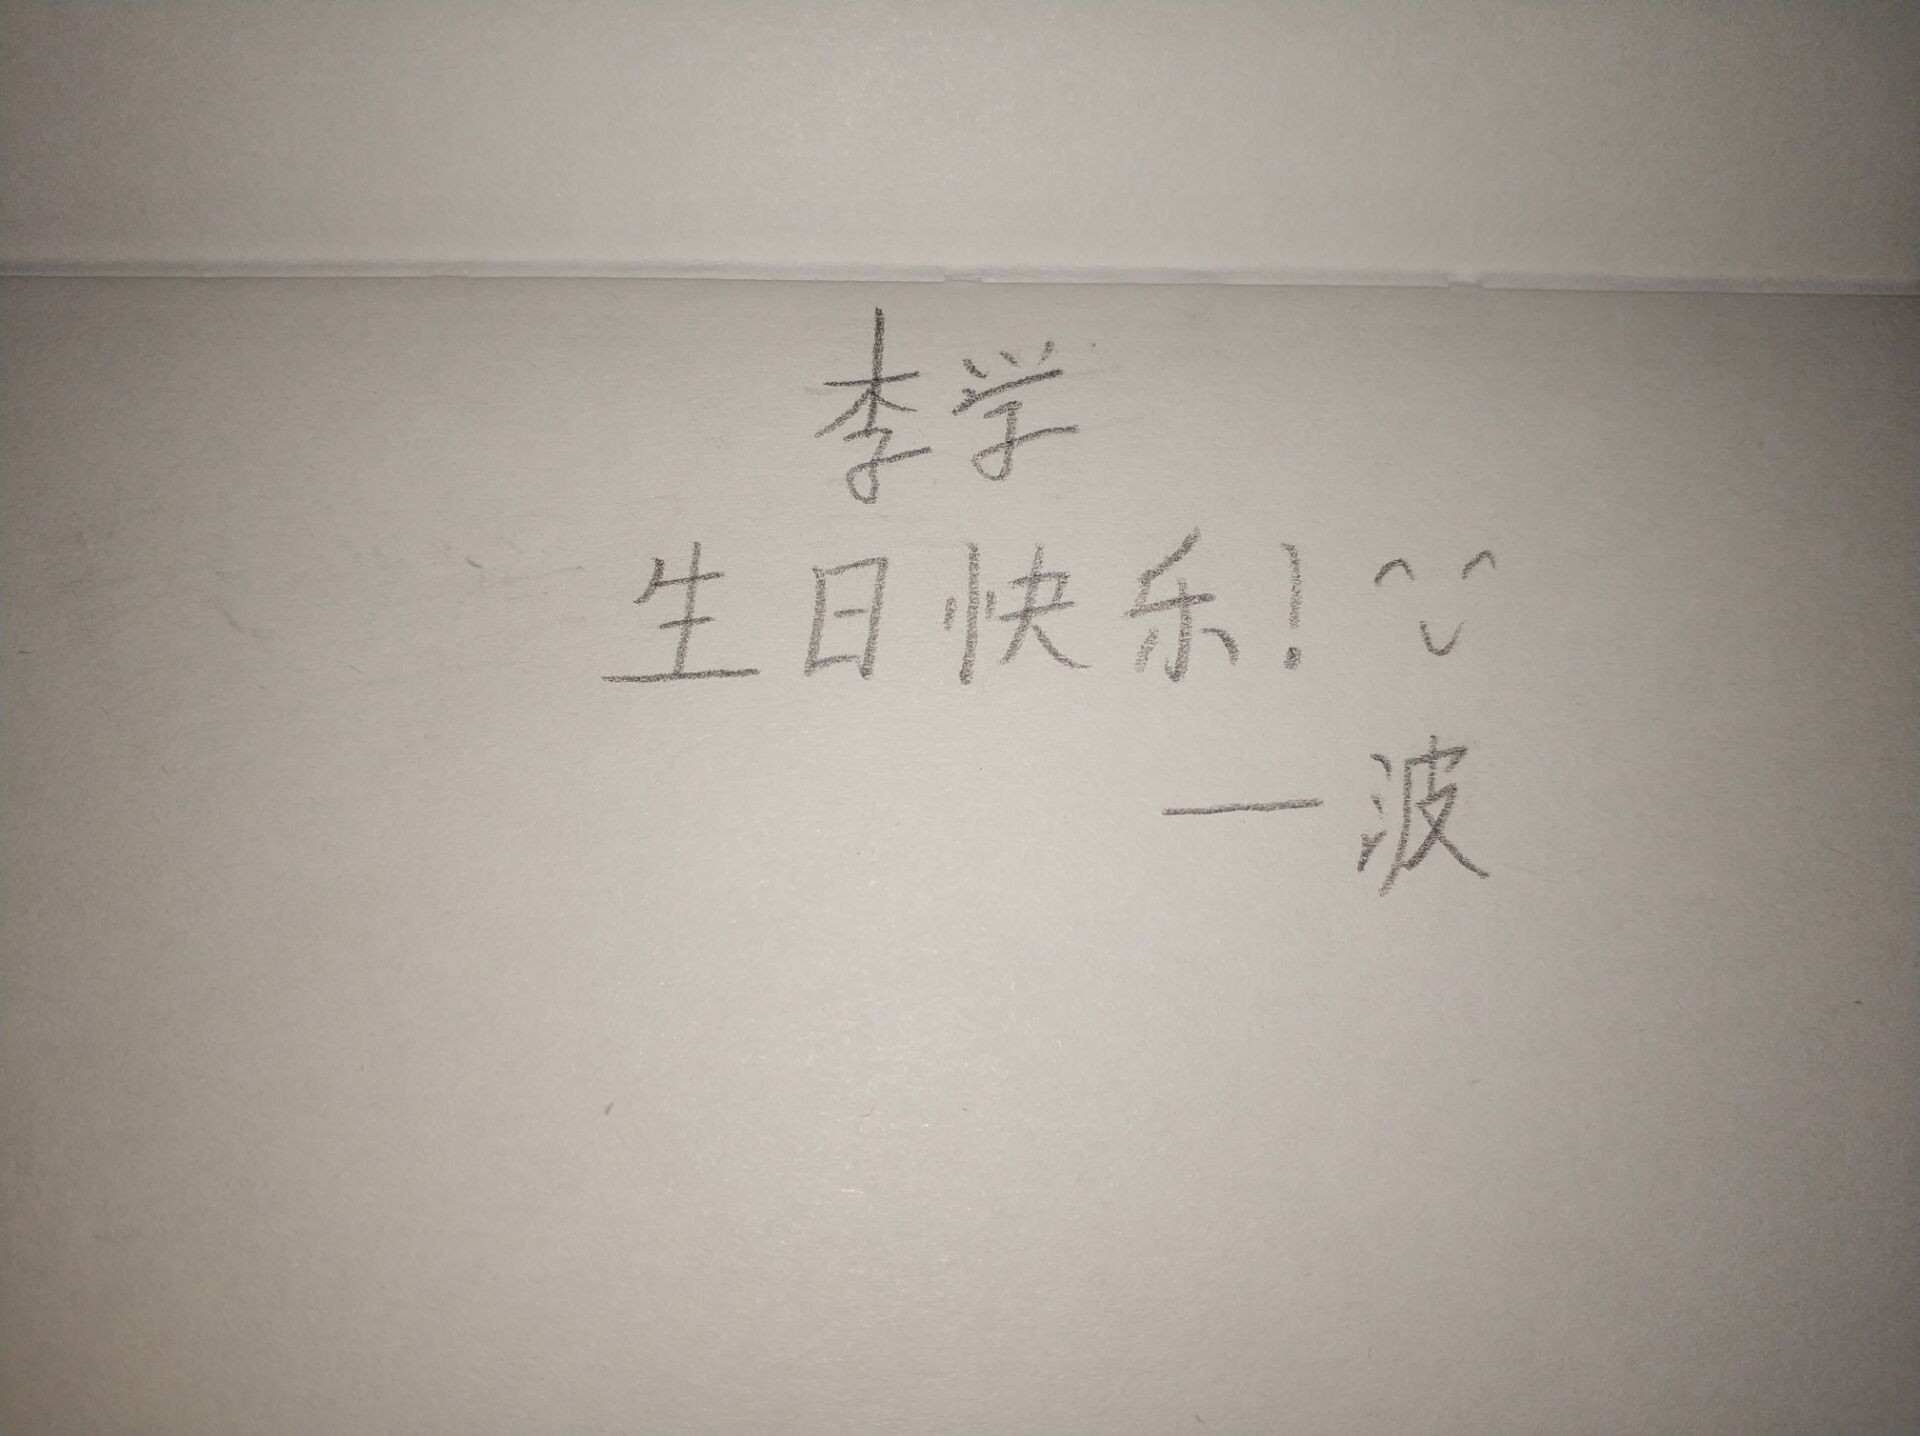 李学
生日快乐!
一波